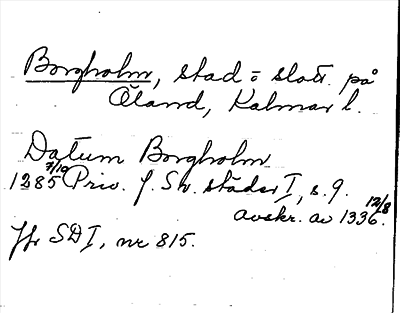 Borgholm, stad o slott. på
Öland, Kalmar l.
Datum Borgholm
1285 7/10 Priv. f. Sv. städer I, s. 9.
avskr. av 1336 12/8.
Jfr SD I, nr 815.